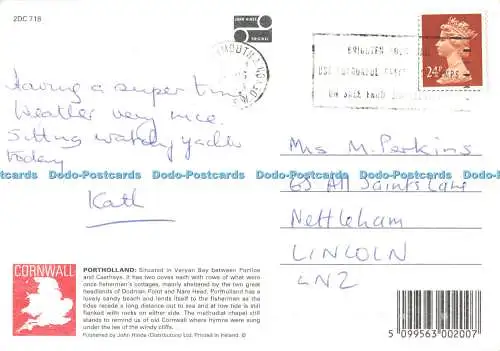 2DC 718
JOHN HINDE
ORIGINAL
24P
Having a super time
Weather very nice.
Sitting watching yachts
today
Kath
Mrs M. Perkins
63 All Saints Lane
Nettleham
LINCOLN
LN2
Dodo-Postcards Dodo-Postcards Dodo-Postcards Dodo-Postcards
CORNWALL
PORTHOLLAND: Situated in Veryan Bay between Portloe
and Caerhays. It has two coves each with rows of what were
once fishermen's cottages, mainly sheltered by the two great
headlands of Dodman Point and Nare Head. Portholland has a
lovely sandy beach and lends itself to the fishermen as the
tides recede a long distance out to sea and at low tide is still
flanked with rocks on either side. The methodist chapel still
stands to remind us of old Cornwall where hymns were sung
under the lee of the windy cliffs.
Published by John Hinde (Distributors) Ltd. Printed in Ireland. ©
5 099563 002007